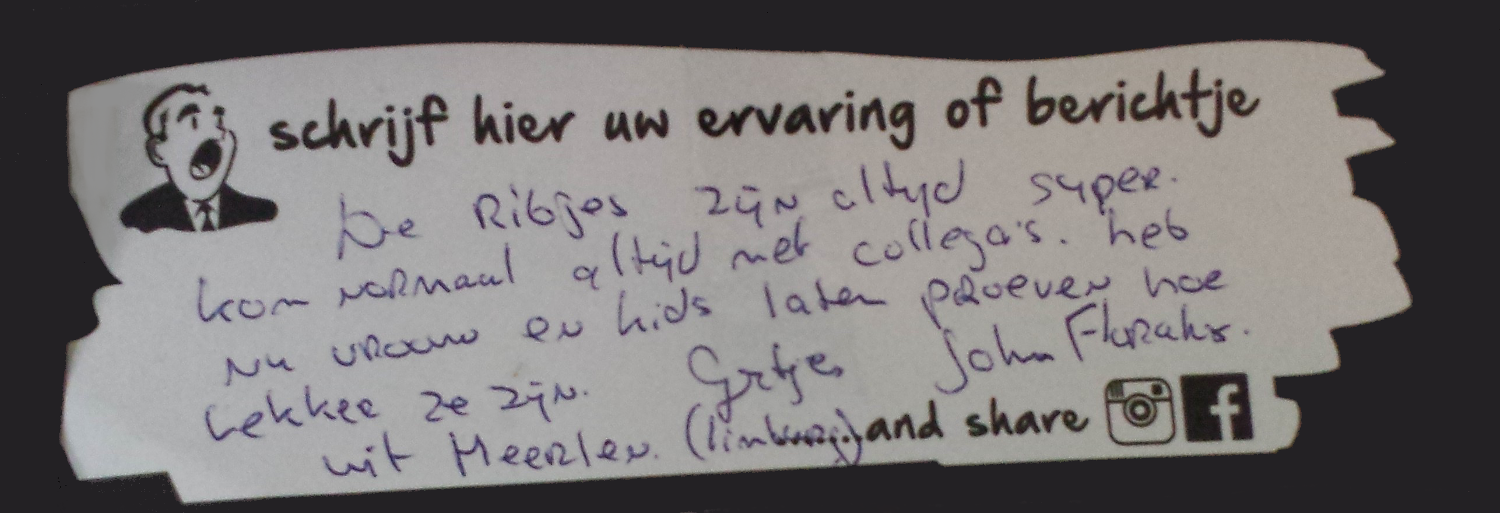 schrijf hier uw ervaring of berichtje
De Ribjes zijn altijd super.
kom normaal altijd met collega's. heb
nu vrouw en kids laten proeven hoe
lekker ze zijn. Grtjes John
uit Heerlen. (limburg) and share